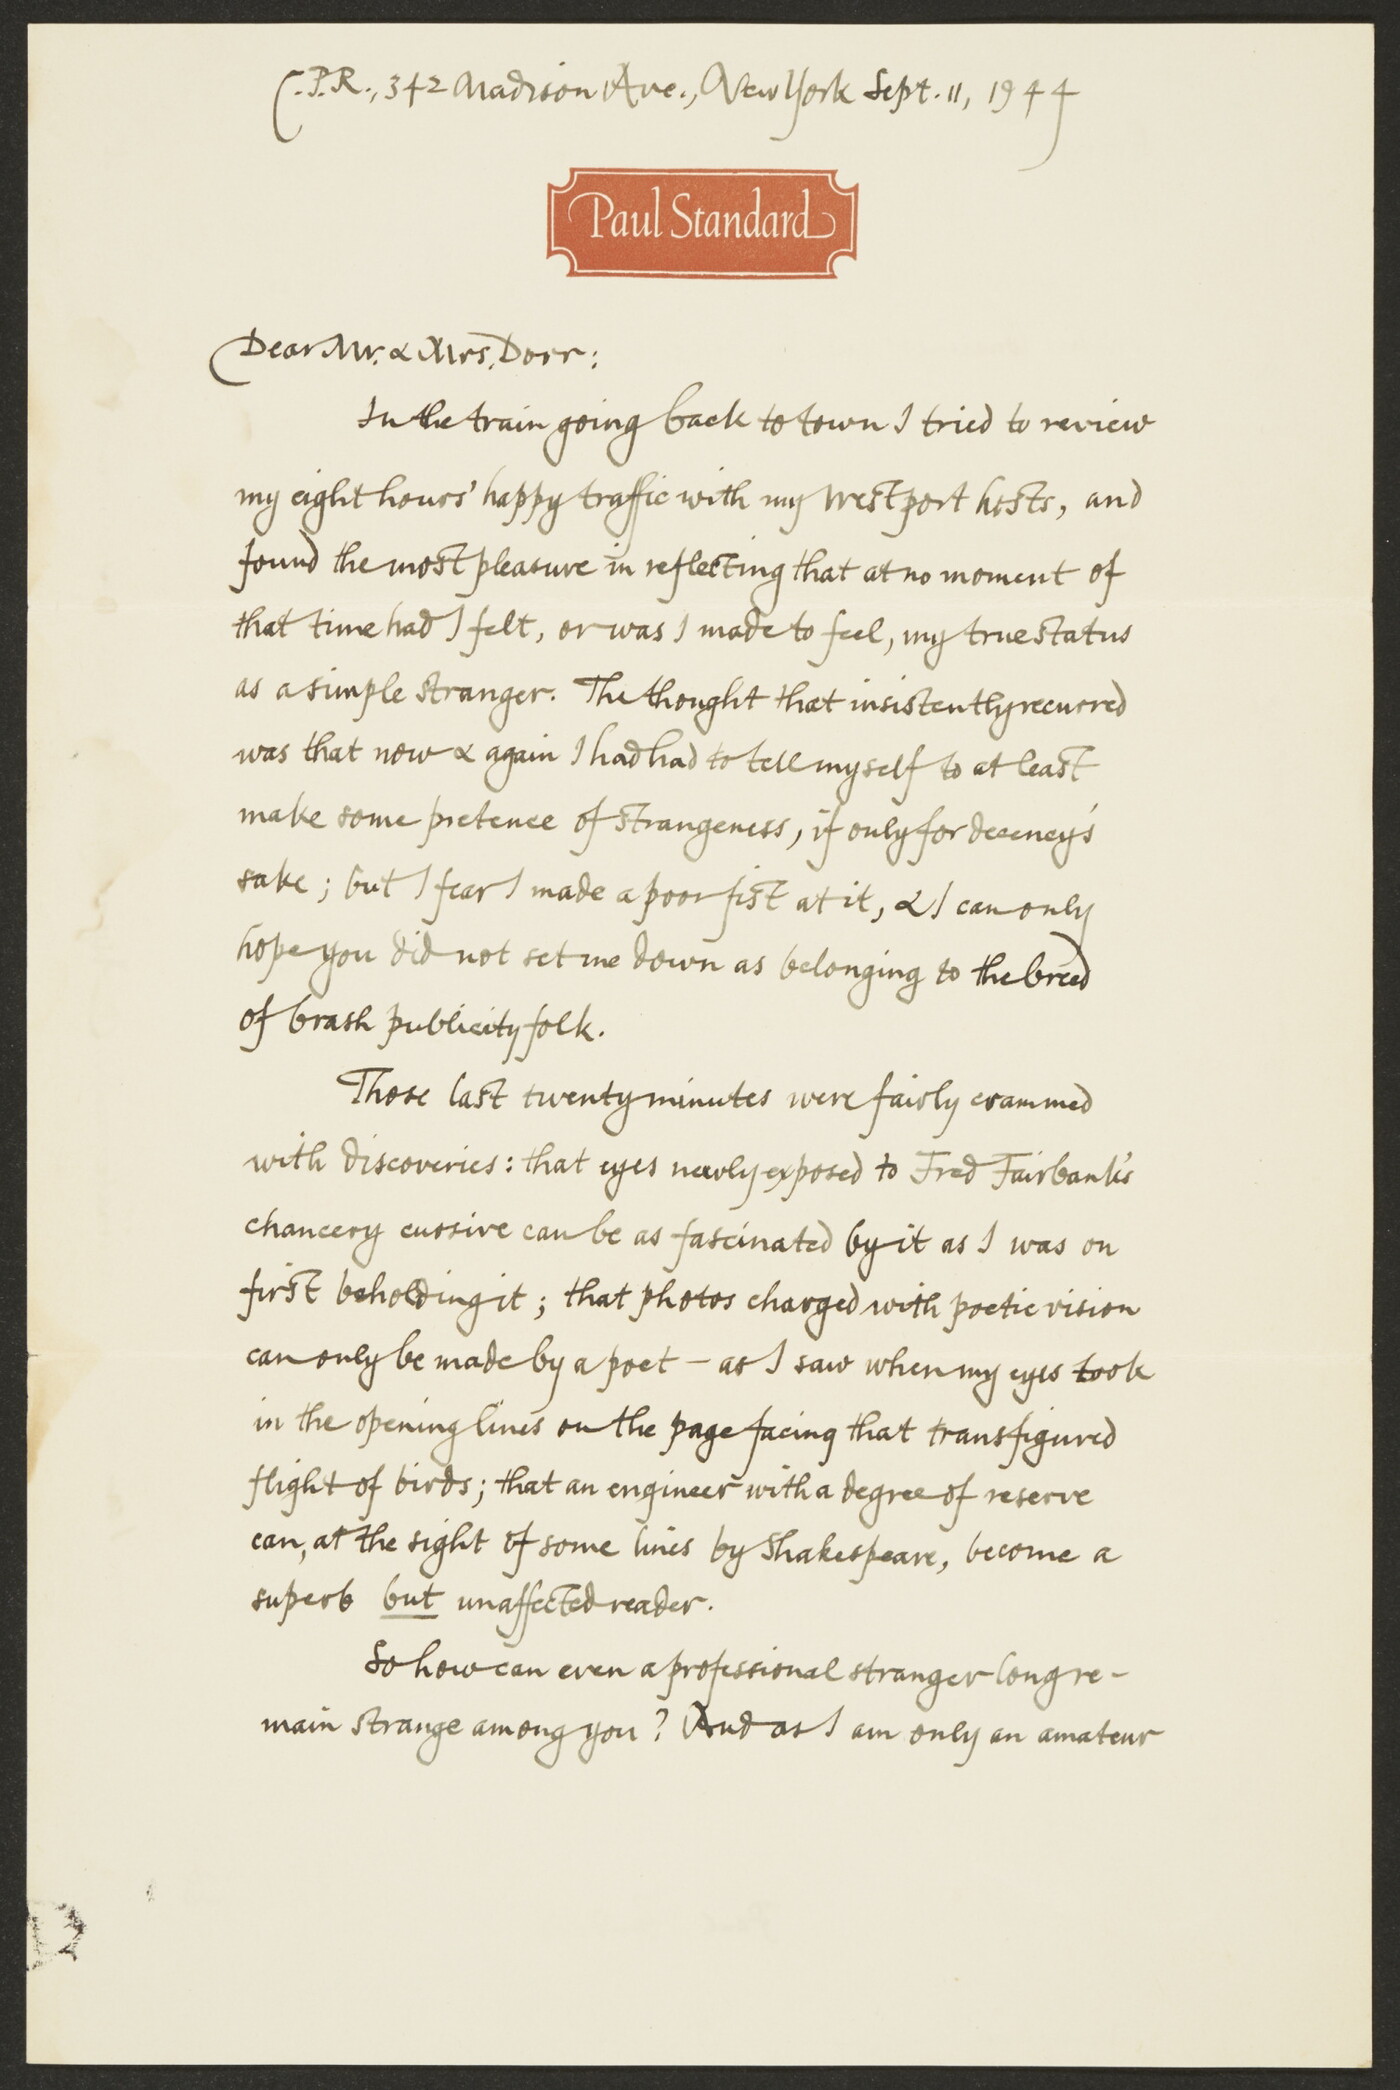 C.P.R., 342 Madison Ave., New York Sept. 11, 1944
Paul Standard
Dear Mr. & Mrs. Dorr:
In the train going back to town I tried to review
my eight hours' happy traffic with my Westport hosts, and
found the most pleasure in reflecting that at no moment of
that time had I felt, or was I made to feel, my true status
as a simple stranger. The thought that insistently recurred
was that now & again I had had to tell myself to at least
make some pretence of strangeness, if only for decency's
sake; but I fear I made a poor fist at it, & I can only
hope you did not set me down as belonging to the breed
of brash publicity folk.
Those last twenty minutes were fairly crammed
with discoveries: that eyes newly exposed to Fred Fairbank's
chancery cursive can be as fascinated by it as I was on
first beholding it; that photos charged with poetic vision
can only be made by a poet – as I saw when my eyes took
in the opening lines on the page facing that transfigured
flight of birds; that an engineer with a degree of reserve
can, at the sight of some lines by Shakespeare, become a
superb but unaffected reader.
So how can even a professional stranger long re-
main strange among you? And as I am only an amateur